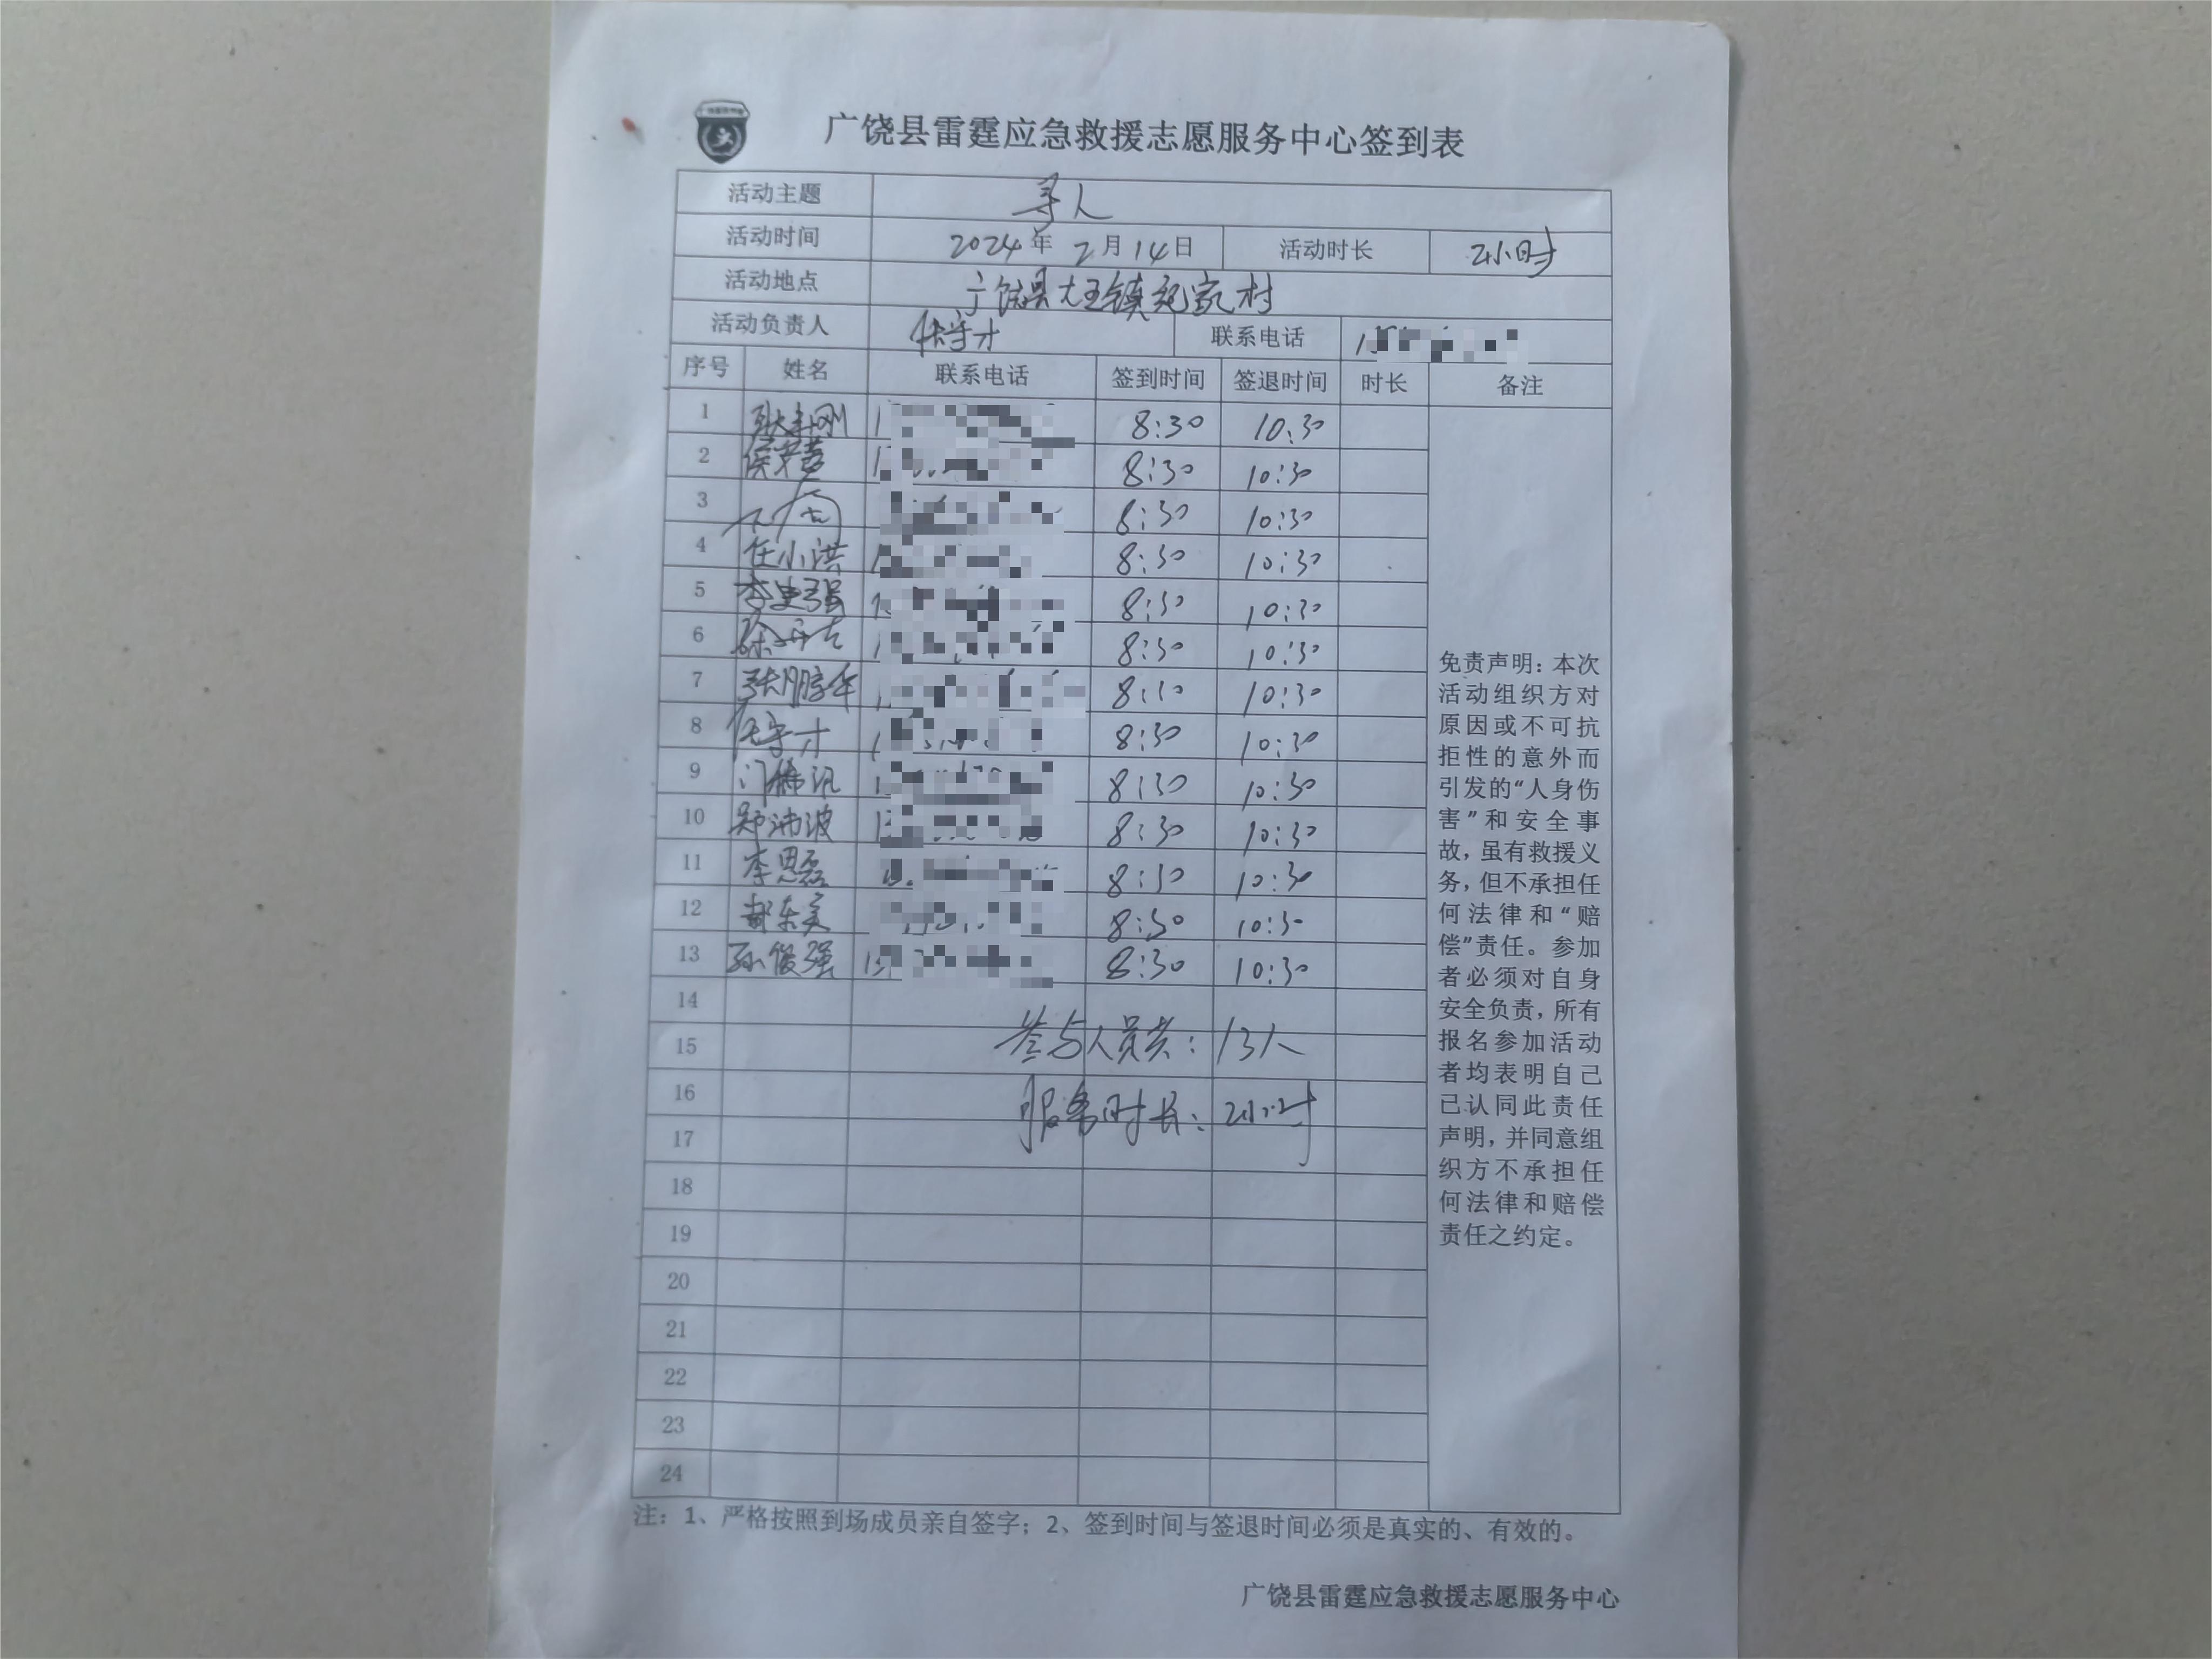 广饶县雷霆应急救援志愿服务中心签到表
活动主题 寻人
活动时间 2024年2月14日 活动时长 2小时
活动地点 广饶县大王镇延家村
活动负责人 任守才 联系电话
序号 姓名 联系电话 签到时间 签退时间 时长 备注
1 8:30 10:30
2 8:30 10:30
3 8:30 10:30
4 任小洪 8:30 10:30
5 李建强 8:30 10:30
6 8:30 10:30
7 张鹏华 8:30 10:30
8 任守才 8:30 10:30
9 8:30 10:30
10 郑沛波 8:30 10:30
11 李恩磊 8:30 10:30
12 8:30 10:30
13 孙俊强 8:30 10:30
14
15 参与人员共:13人
16 服务时长:2小时
17
18
19
20
21
22
23
24
免责声明:本次
活动组织方对
原因或不可抗
拒性的意外而
引发的“人身伤
害”和安全事
故,虽有救援义
务,但不承担任
何法律和“赔
偿”责任。参加
者必须对自身
安全负责,所有
报名参加活动
者均表明自己
已认同此责任
声明,并同意组
织方不承担任
何法律和赔偿
责任之约定。
注:1、严格按照到场成员亲自签字;2、签到时间与签退时间必须是真实的、有效的。
广饶县雷霆应急救援志愿服务中心